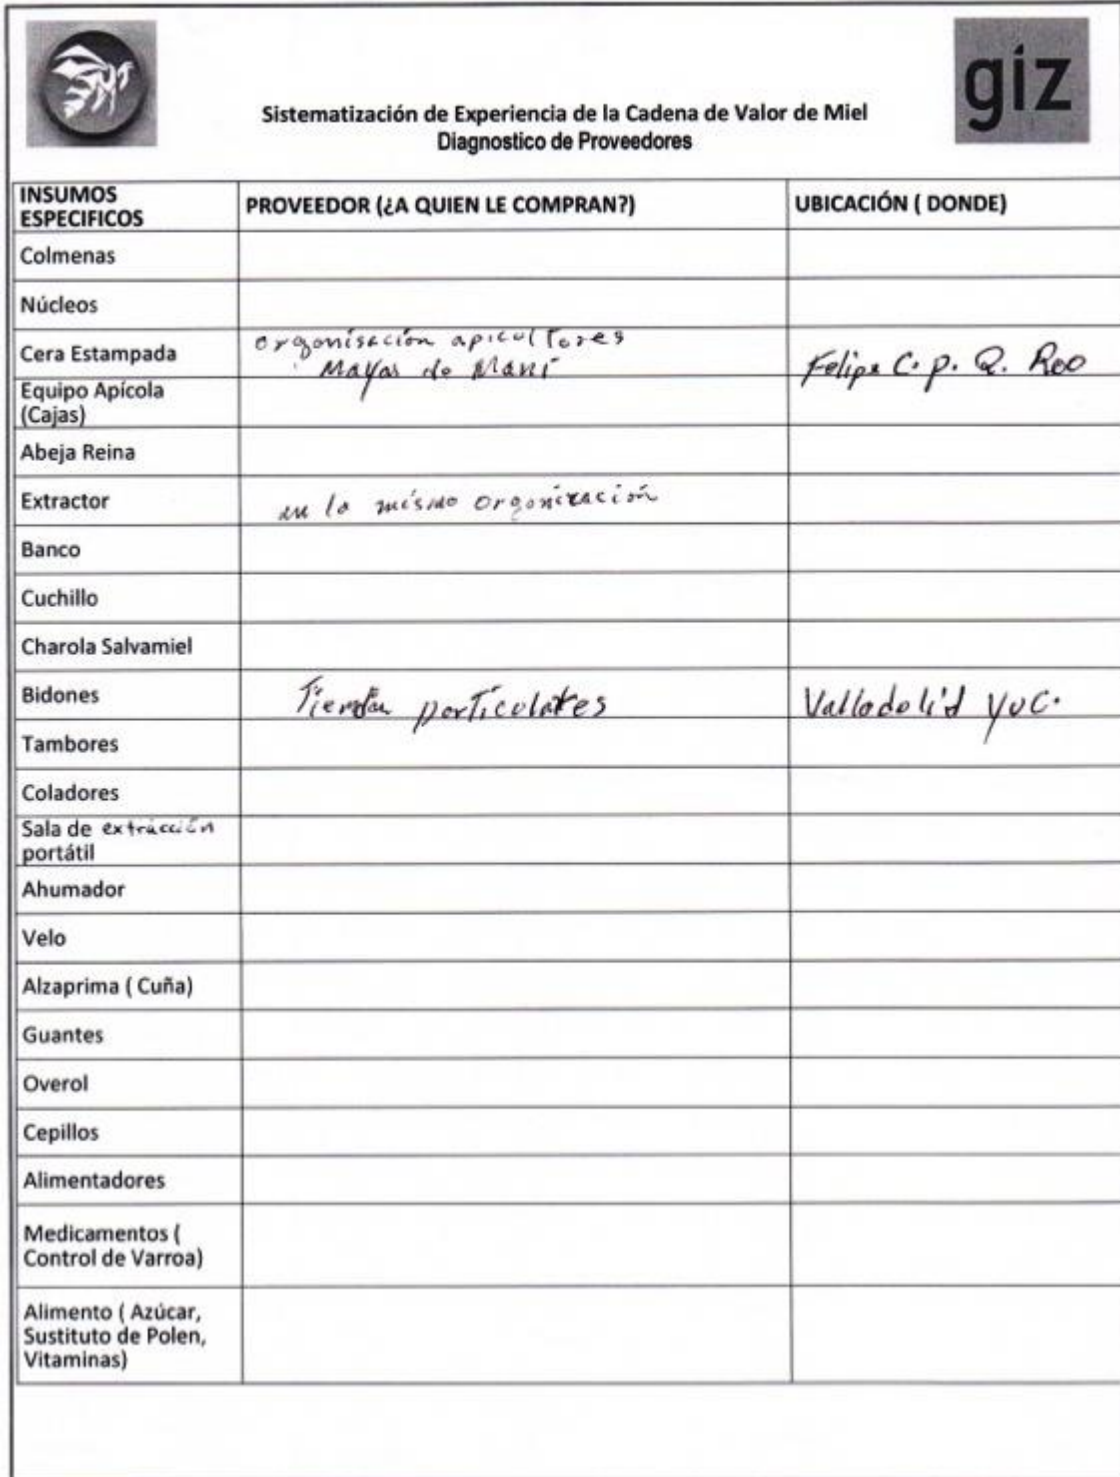 giz
Sistematización de Experiencia de la Cadena de Valor de Miel
Diagnostico de Proveedores
INSUMOS ESPECIFICOS PROVEEDOR (¿A QUIEN LE COMPRAN?) UBICACIÓN ( DONDE)
Colmenas
Núcleos
Cera Estampada organisación apicultores Mayas de Maní Felipe C. p. Q. Roo
Equipo Apícola (Cajas)
Abeja Reina
Extractor en la mismo organización
Banco
Cuchillo
Charola Salvamiel
Bidones particulares Valladolid YUC.
Tambores
Coladores
Sala de extracción portátil
Ahumador
Velo
Alzaprima ( Cuña)
Guantes
Overol
Cepillos
Alimentadores
Medicamentos ( Control de Varroa)
Alimento ( Azúcar, Sustituto de Polen, Vitaminas)